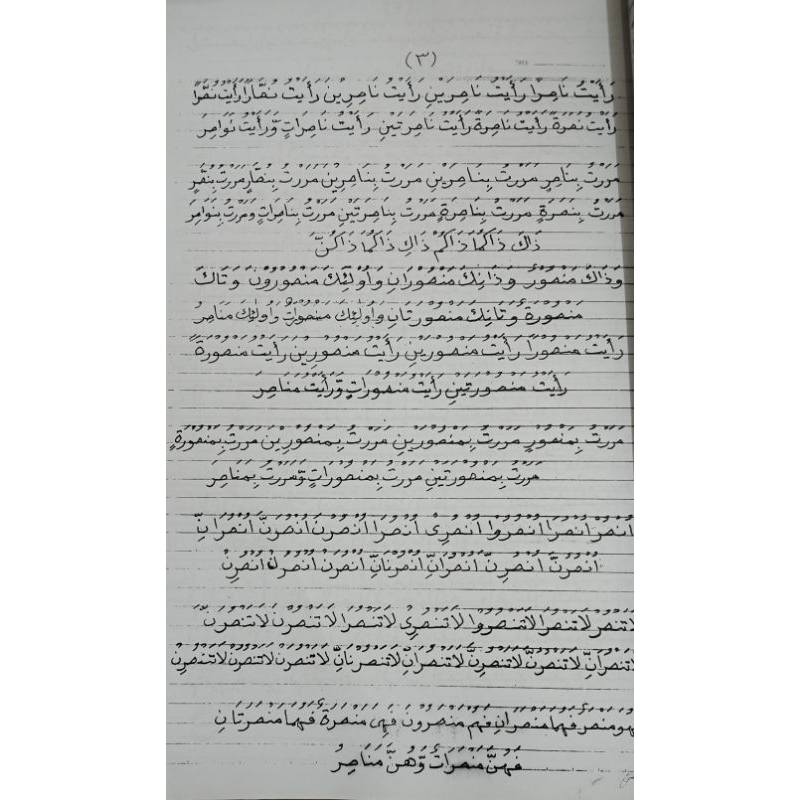 (٣)
رَأَيْتُ نَاصِرًا رَأَيْتُ نَاصِرَيْنِ رَأَيْتُ نَاصِرِيْنَ رَأَيْتُ نُصَّارًا رَأَيْتُ نُصَّرًا
رَأَيْتُ نَصَرَةً رَأَيْتُ نَاصِرَةً رَأَيْتُ نَاصِرَتَيْنِ رَأَيْتُ نَاصِرَاتٍ وَّرَأَيْتُ نَوَاصِرَ
مَرَرْتُ بِنَاصِرٍ مَرَرْتُ بِنَاصِرَيْنِ مَرَرْتُ بِنَاصِرِيْنَ مَرَرْتُ بِنُصَّارٍ مَرَرْتُ بِنُصَّرٍ
مَرَرْتُ بِنَصَرَةٍ مَرَرْتُ بِنَاصِرَةٍ مَرَرْتُ بِنَاصِرَتَيْنِ مَرَرْتُ بِنَاصِرَاتٍ وَمَرَرْتُ بِنَوَاصِرَ
ذَاكَ ذَاكُمَا ذَاكُمْ ذَاكِ ذَاكُمَا ذَاكُنَّ
وَذَاكَ مَنْصُوْرٌ وَذَانِكَ مَنْصُوْرَانِ وَأُولٰئِكَ مَنْصُوْرُوْنَ وَتَاكَ
مَنْصُوْرَةٌ وَتَانِكَ مَنْصُوْرَتَانِ وَأُولٰئِكَ مَنْصُوْرَاتٌ وَأُولٰئِكَ مَنَاصِرُ
رَأَيْتُ مَنْصُوْرًا رَأَيْتُ مَنْصُوْرَيْنِ رَأَيْتُ مَنْصُوْرِيْنَ رَأَيْتُ مَنْصُوْرَةً
رَأَيْتُ مَنْصُوْرَتَيْنِ رَأَيْتُ مَنْصُوْرَاتٍ وَّرَأَيْتُ مَنَاصِرَ
مَرَرْتُ بِمَنْصُوْرٍ مَرَرْتُ بِمَنْصُوْرَيْنِ مَرَرْتُ بِمَنْصُوْرِيْنَ مَرَرْتُ بِمَنْصُوْرَةٍ
مَرَرْتُ بِمَنْصُوْرَتَيْنِ مَرَرْتُ بِمَنْصُوْرَاتٍ وَّمَرَرْتُ بِمَنَاصِرَ
اُنْصُرْ اُنْصُرَا اُنْصُرُوْا اُنْصُرِيْ اُنْصُرَا اُنْصُرْنَ اُنْصُرَنَّ اُنْصُرَانِّ
اُنْصُرُنَّ اُنْصُرِنَّ اُنْصُرَانِّ اُنْصُرْنَانِّ اُنْصُرَنْ اُنْصُرُنْ اُنْصُرِنْ
لَاتَنْصُرْ لَاتَنْصُرَا لَاتَنْصُرُوْا لَاتَنْصُرِيْ لَاتَنْصُرَا لَاتَنْصُرْنَ لَاتَنْصُرَنَّ
لَاتَنْصُرَانِّ لَاتَنْصُرُنَّ لَاتَنْصُرِنَّ لَاتَنْصُرَانِّ لَاتَنْصُرْنَانِّ لَاتَنْصُرَنْ لَاتَنْصُرُنْ لَاتَنْصُرِنْ
فَهُوَ مَنْصَرٌ فَهُمَا مَنْصَرَانِ فَهُمْ مَنْصَرُوْنَ فَهِيَ مَنْصَرَةٌ فَهُمَا مَنْصَرَتَانِ
فَهُنَّ مَنْصَرَاتٌ وَّهُنَّ مَنَاصِرُ